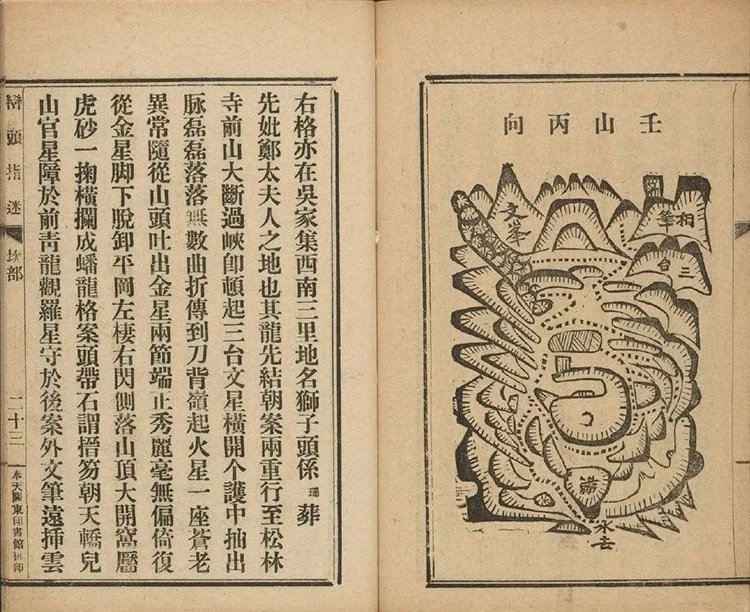 壬山丙向
相筆
三台
文峯
水去
右格亦在吳家集西南三里地名獅子頭係葬
先妣鄭太夫人之地也其龍先結朝案兩重行至松林
寺前山大斷過峽卽頓起三台文星橫開个護中抽出
脉磊磊落落無數曲折傳到刀背嶺起火星一座蒼老
異常隨從山頭吐出金星兩節端正秀麗毫無偏倚復
從金星脚下脫卸平岡左棲右閃側落山頂大開窩靨
虎砂一掬橫攔成蟠龍格案頭帶石謂搢笏朝天轎兒
山官星障於前青龍觀羅星守於後案外文筆遠揷雲
巒頭指迷
坎部
二十三
奉天關東印書館印